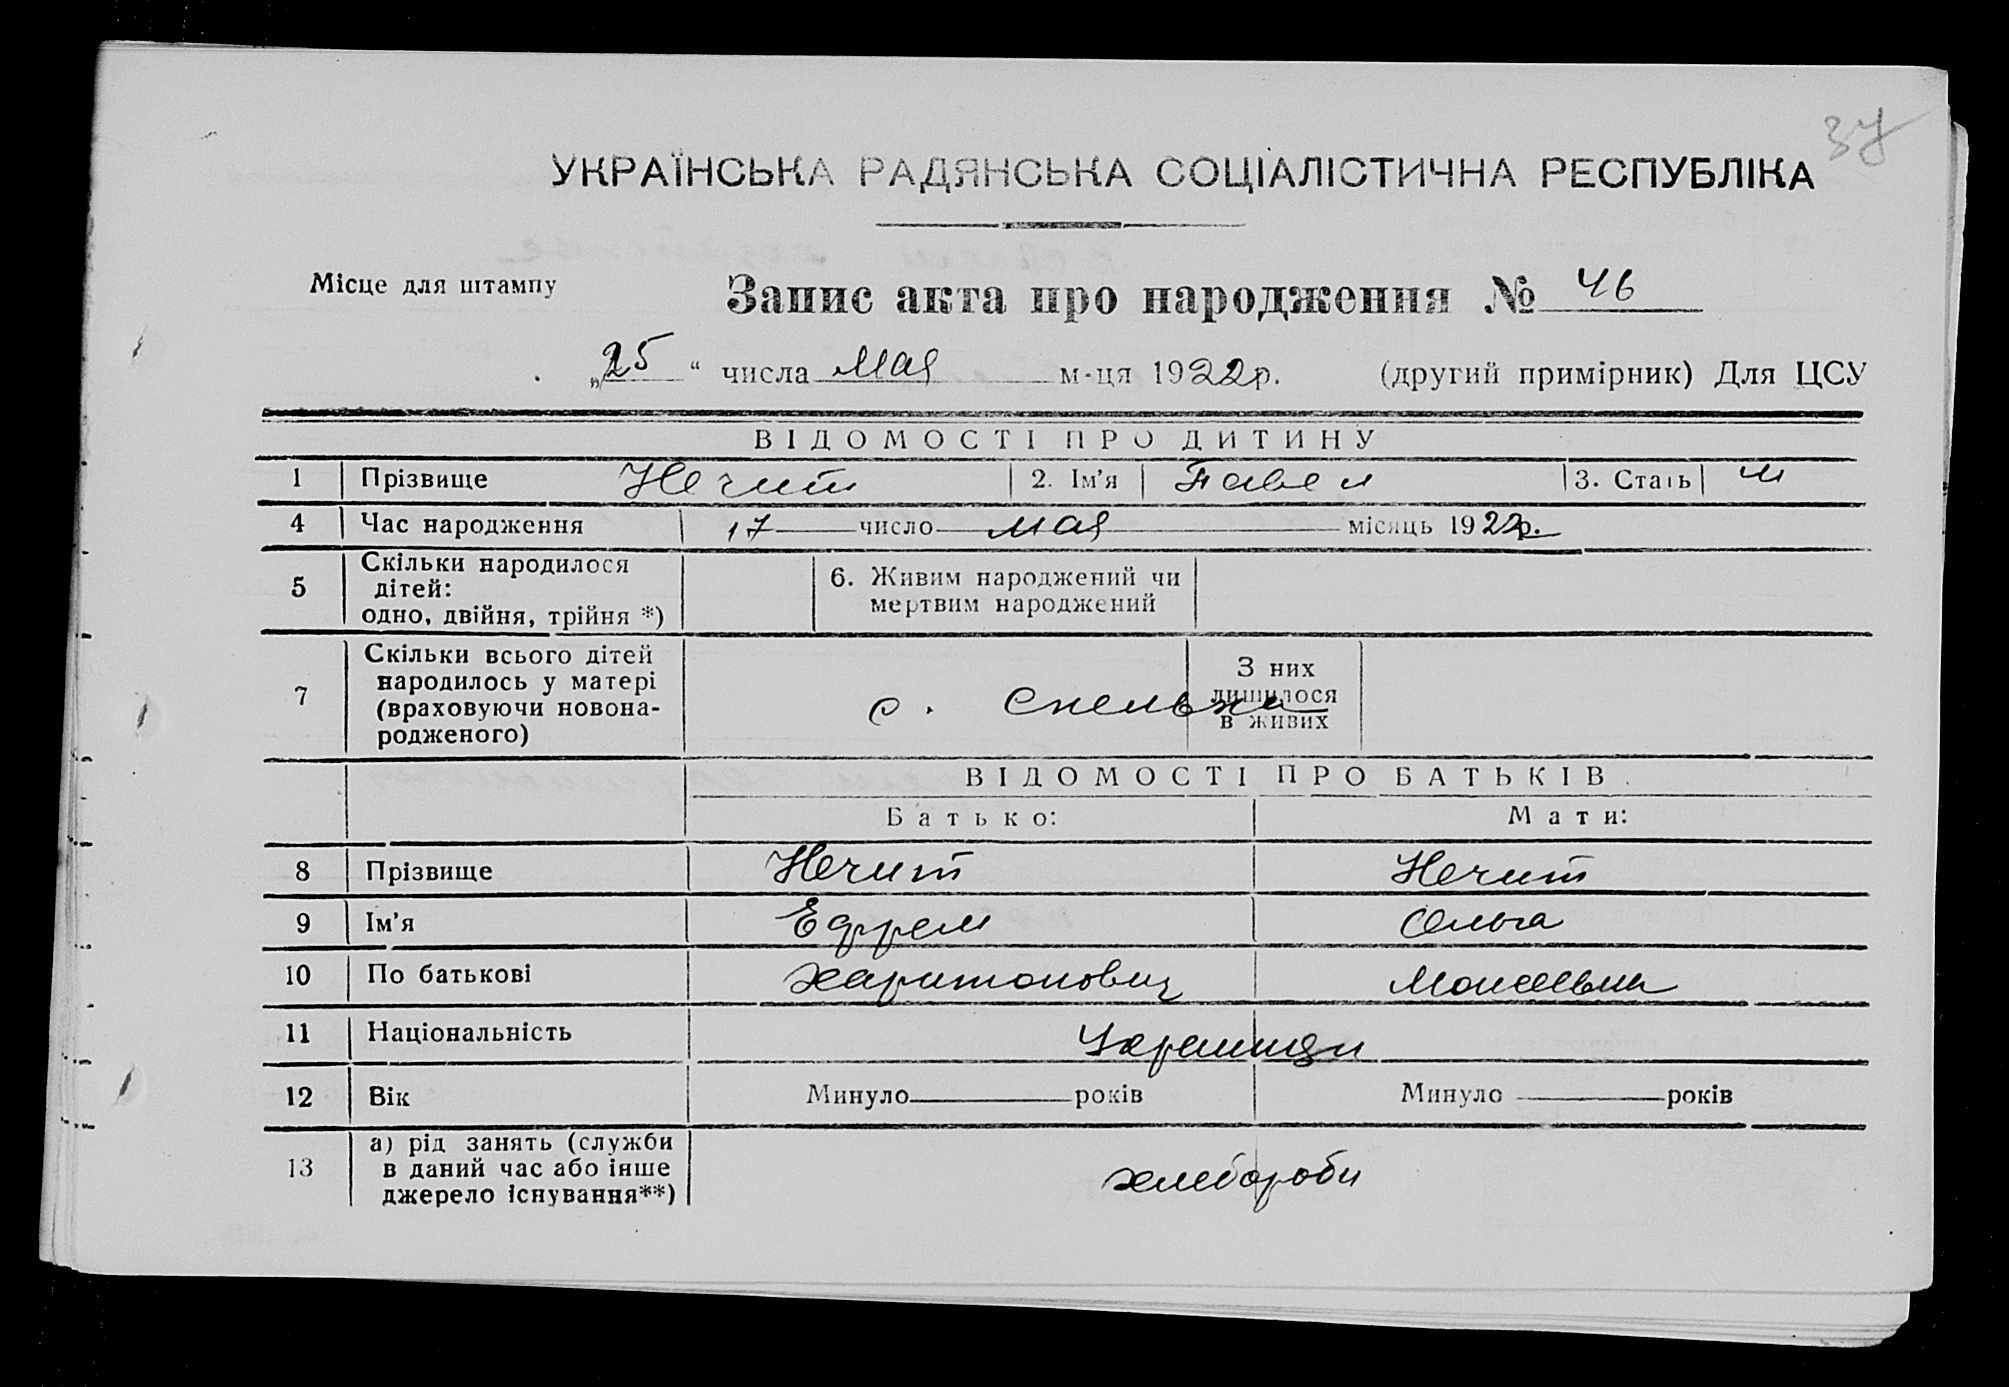 УКРАЇНСЬКА РАДЯНСЬКА СОЦІАЛІСТИЧНА РЕСПУБЛІКА
Місце для штампу
Запис акта про народження № 46
„25“ числа Мая м-ця 1922р. (другий примірник) Для ЦСУ
ВІДОМОСТІ ПРО ДИТИНУ
1 Прізвище Нечит 2. Ім'я Павел 3. Стать м
4 Час народження 17 число мая місяць 1922р.
5 Скільки народилося дітей: одно, двійня, трійня *) 6. Живим народжений чи мертвим народжений
7 Скільки всього дітей народилось у матері (враховуючи новонародженого) с. З них лишилося в живих
ВІДОМОСТІ ПРО БАТЬКІВ
Батько: Мати:
8 Прізвище Нечит Нечит
9 Ім'я Ефрем Ольга
10 По батькові Харитонович Моисеевна
11 Національність Украинци
12 Вік Минуло років Минуло років
13 а) рід занять (служби в даний час або інше джерело існування**) хлебороби